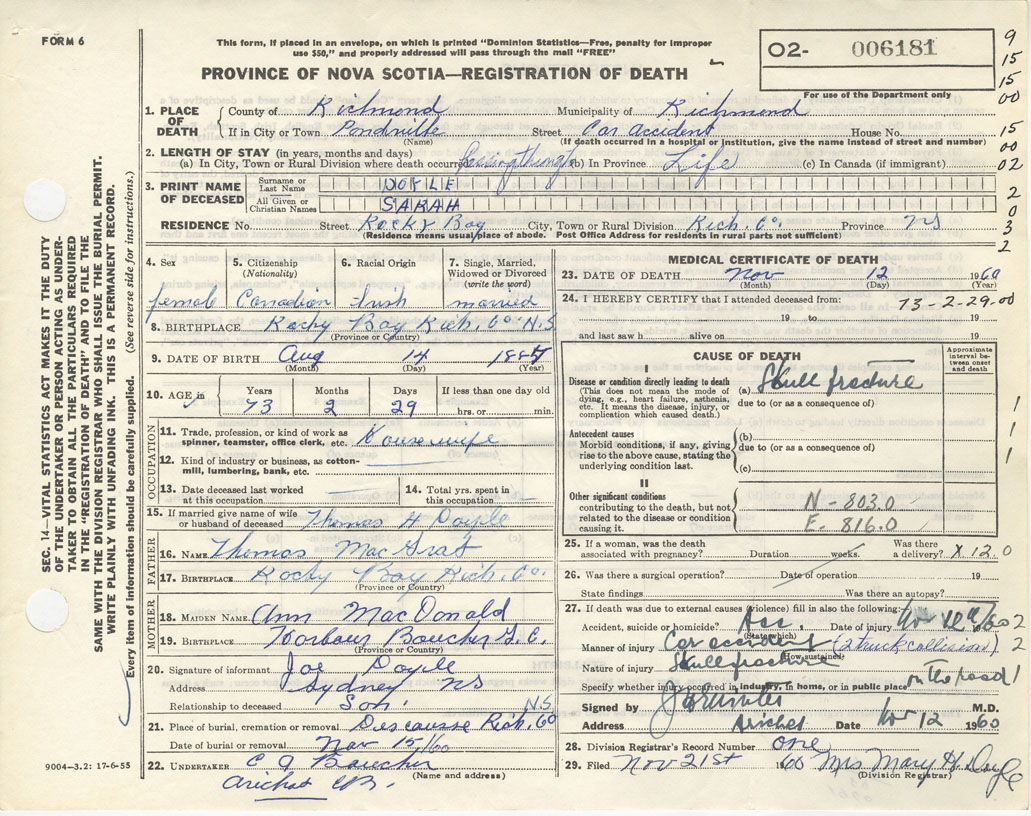 FORM 6
This form, if placed in an envelope, on which is printed "Dominion Statistics—Free, penalty for improper
use $50," and properly addressed will pass through the mail "FREE"
PROVINCE OF NOVA SCOTIA—REGISTRATION OF DEATH
O2- 006181
For use of the Department only
9
15
15
00
15
00
02
2
0
3
2
SEC. 14—VITAL STATISTICS ACT MAKES IT THE DUTY
OF THE UNDERTAKER OR PERSON ACTING AS UNDER-
TAKER TO OBTAIN ALL THE PARTICULARS REQUIRED
IN THE "REGISTRATION OF DEATH" AND TO FILE THE
SAME WITH THE DIVISION REGISTRAR WHO SHALL ISSUE THE BURIAL PERMIT.
WRITE PLAINLY WITH UNFADING INK. THIS IS A PERMANENT RECORD.
Every item of information should be carefully supplied. (See reverse side for instructions.)
1. PLACE OF DEATH County of Richmond Municipality of Richmond
If in City or Town Pondville Street Car accident House No.
(Name) (If death occurred in a hospital or institution, give the name instead of street and number)
2. LENGTH OF STAY (in years, months and days)
(a) In City, Town or Rural Division where death occurred (b) In Province Life (c) In Canada (if immigrant)
3. PRINT NAME OF DECEASED Surname or Last Name DOYLE
All Given or Christian Names SARAH
RESIDENCE No. Street Rocky Bay City, Town or Rural Division Rich. Co. Province NS
(Residence means usual place of abode. Post Office Address for residents in rural parts not sufficient)
4. Sex 5. Citizenship (Nationality) 6. Racial Origin 7. Single, Married, Widowed or Divorced (write the word)
female Canadian Irish married
8. BIRTHPLACE Rocky Bay Rich. Co. N.S
(Province or Country)
9. DATE OF BIRTH Aug 14 1887
(Month) (Day) (Year)
10. AGE in Years Months Days If less than one day old
73 2 29 hrs. or min.
OCCUPATION
11. Trade, profession, or kind of work as spinner, teamster, office clerk, etc. Housewife
12. Kind of industry or business, as cotton-mill, lumbering, bank, etc.
13. Date deceased last worked at this occupation. 14. Total yrs. spent in this occupation
15. If married give name of wife or husband of deceased Thomas H Doyle
FATHER
16. NAME Thomas Mac Grat
17. BIRTHPLACE Rocky Bay Rich. Co.
(Province or Country)
MOTHER
18. MAIDEN NAME Ann MacDonald
19. BIRTHPLACE Harbour Boucher
(Province or Country)
20. Signature of informant Joe Doyle
Address Sydney NS
Relationship to deceased Son.
21. Place of burial, cremation or removal Descousse Rich. Co N.S.
Date of burial or removal Nov 15/60
22. UNDERTAKER Boucher
(Name and address)
Arichat CB.
9004—3.2: 17-6-55
MEDICAL CERTIFICATE OF DEATH
23. DATE OF DEATH Nov 12 1960
(Month) (Day) (Year)
24. I HEREBY CERTIFY that I attended deceased from: 73-2-29-00
19 to 19
and last saw h alive on 19
CAUSE OF DEATH
Approximate interval between onset and death
I
Disease or condition directly leading to death (a) Skull fracture
(This does not mean the mode of dying, e.g., heart failure, asthenia, etc. It means the disease, injury, or complication which caused death.) due to (or as a consequence of)
Antecedent causes (b)
Morbid conditions, if any, giving rise to the above cause, stating the underlying condition last. due to (or as a consequence of)
(c)
1
1
1
II
Other significant conditions contributing to the death, but not related to the disease or condition causing it.
N-803.0
E-816.0
25. If a woman, was the death associated with pregnancy? Duration weeks. Was there a delivery? X 12.0
26. Was there a surgical operation? Date of operation 19
State findings Was there an autopsy?
27. If death was due to external causes (violence) fill in also the following:
Accident, suicide or homicide? Acc. Date of injury Nov 12th/60 2
(State which)
Manner of injury Car accident (2 truck collision) 2
(How sustained)
Nature of injury Skull fracture
Specify whether injury occurred in industry, in home, or in public place on the road 1
Signed by M.D.
Address Arichat Date Nov 12 1960
28. Division Registrar's Record Number one
29. Filed Nov 21st 1960 Mrs Mary H Doyle
(Division Registrar)